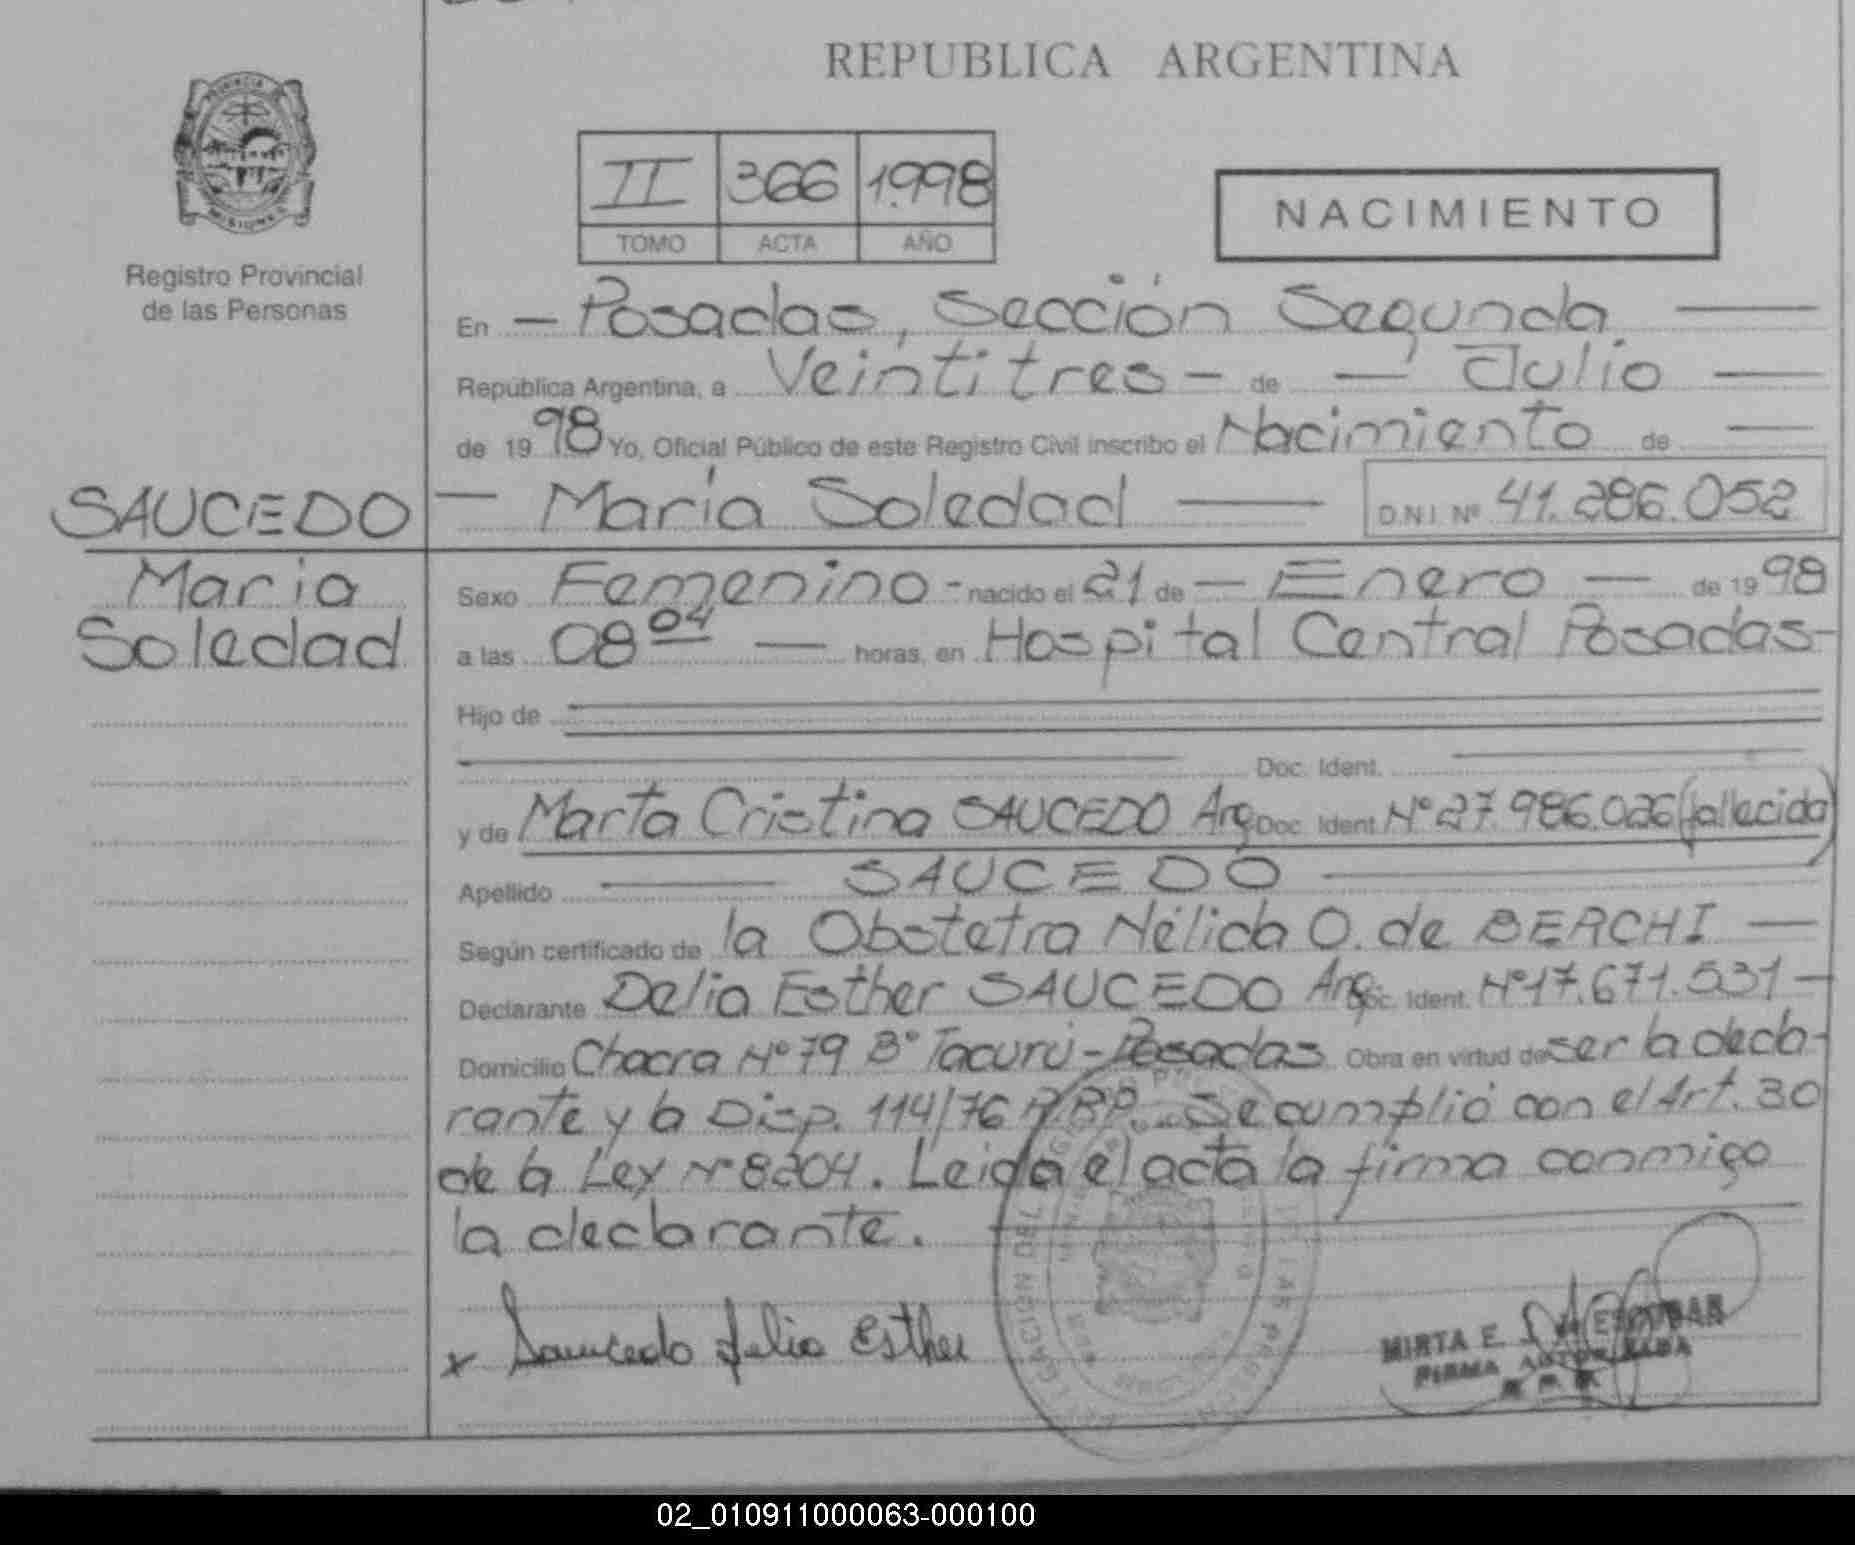 REPUBLICA ARGENTINA
PROVINCIA
MISIONES
Registro Provincial
de las Personas
II 366 1.998
TOMO ACTA AÑO
NACIMIENTO
En — Posadas, Sección Segunda —
República Argentina, a Veintitres - de — Julio —
de 19 98 Yo, Oficial Público de este Registro Civil inscribo el Nacimiento de —
SAUCEDO — María Soledad — D.N.I. Nº 41.286.052
Maria
Soledad
Sexo Femenino - nacido el 21 de — Enero — de 19 98
a las 08 04 — horas, en Hospital Central Posadas -
Hijo de
Doc. Ident.
y de Marta Cristina SAUCEDO Arg Doc. Ident Nº 27.986.026 (fallecida)
Apellido — SAUCEDO —
Según certificado de la Obstetra Nélida O. de BERCHI —
Declarante Delia Esther SAUCEDO Arg. Doc. Ident. Nº 17.671.531 -
Domicilio Chacra Nº 79 Bº Tacurú - Posadas Obra en virtud de ser la decla-
rante y la Disp. 114/76 R.P.P. Se cumplió con el Art. 30
de la Ley Nº 8204. Leida el acta la firma conmigo
la declarante.
x Saucedo Delia Esther
MIRTA E. ESCOBAR
FIRMA AUTORIZADA
02_010911000063-000100